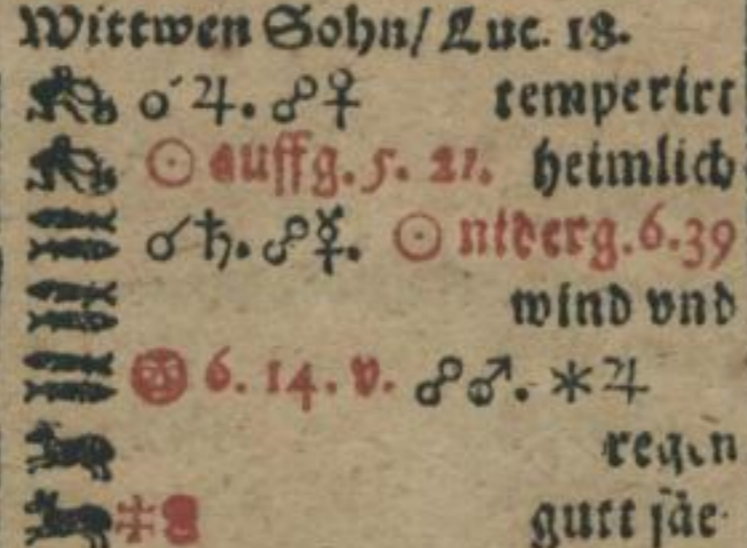 Wittwen Sohn/ Luc. 18.
♒ ☌ ♃. ☍ ♀ temperirt
♒ ☉ auffg. 5. 21. heimlich
♓ ☌ ♄. ☍ ☿. ☉ niderg. 6. 39
♓ wind vnd
♓ 6. 14. v. ☍ ♂. ⚹ ♃
♈ regen
♈ gutt säe